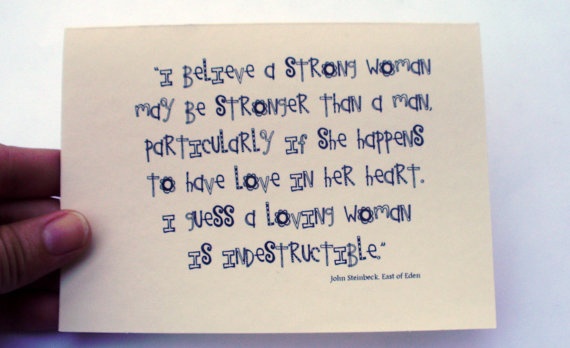 "I BELIEVE A STRONG WOMAN
MAY BE STRONGER THAN A MAN,
PARTICULARLY IF SHE HAPPENS
TO HAVE LOVE IN HER HEART.
I GUESS A LOVING WOMAN
IS INDESTRUCTIBLE."
John Steinbeck, East of Eden